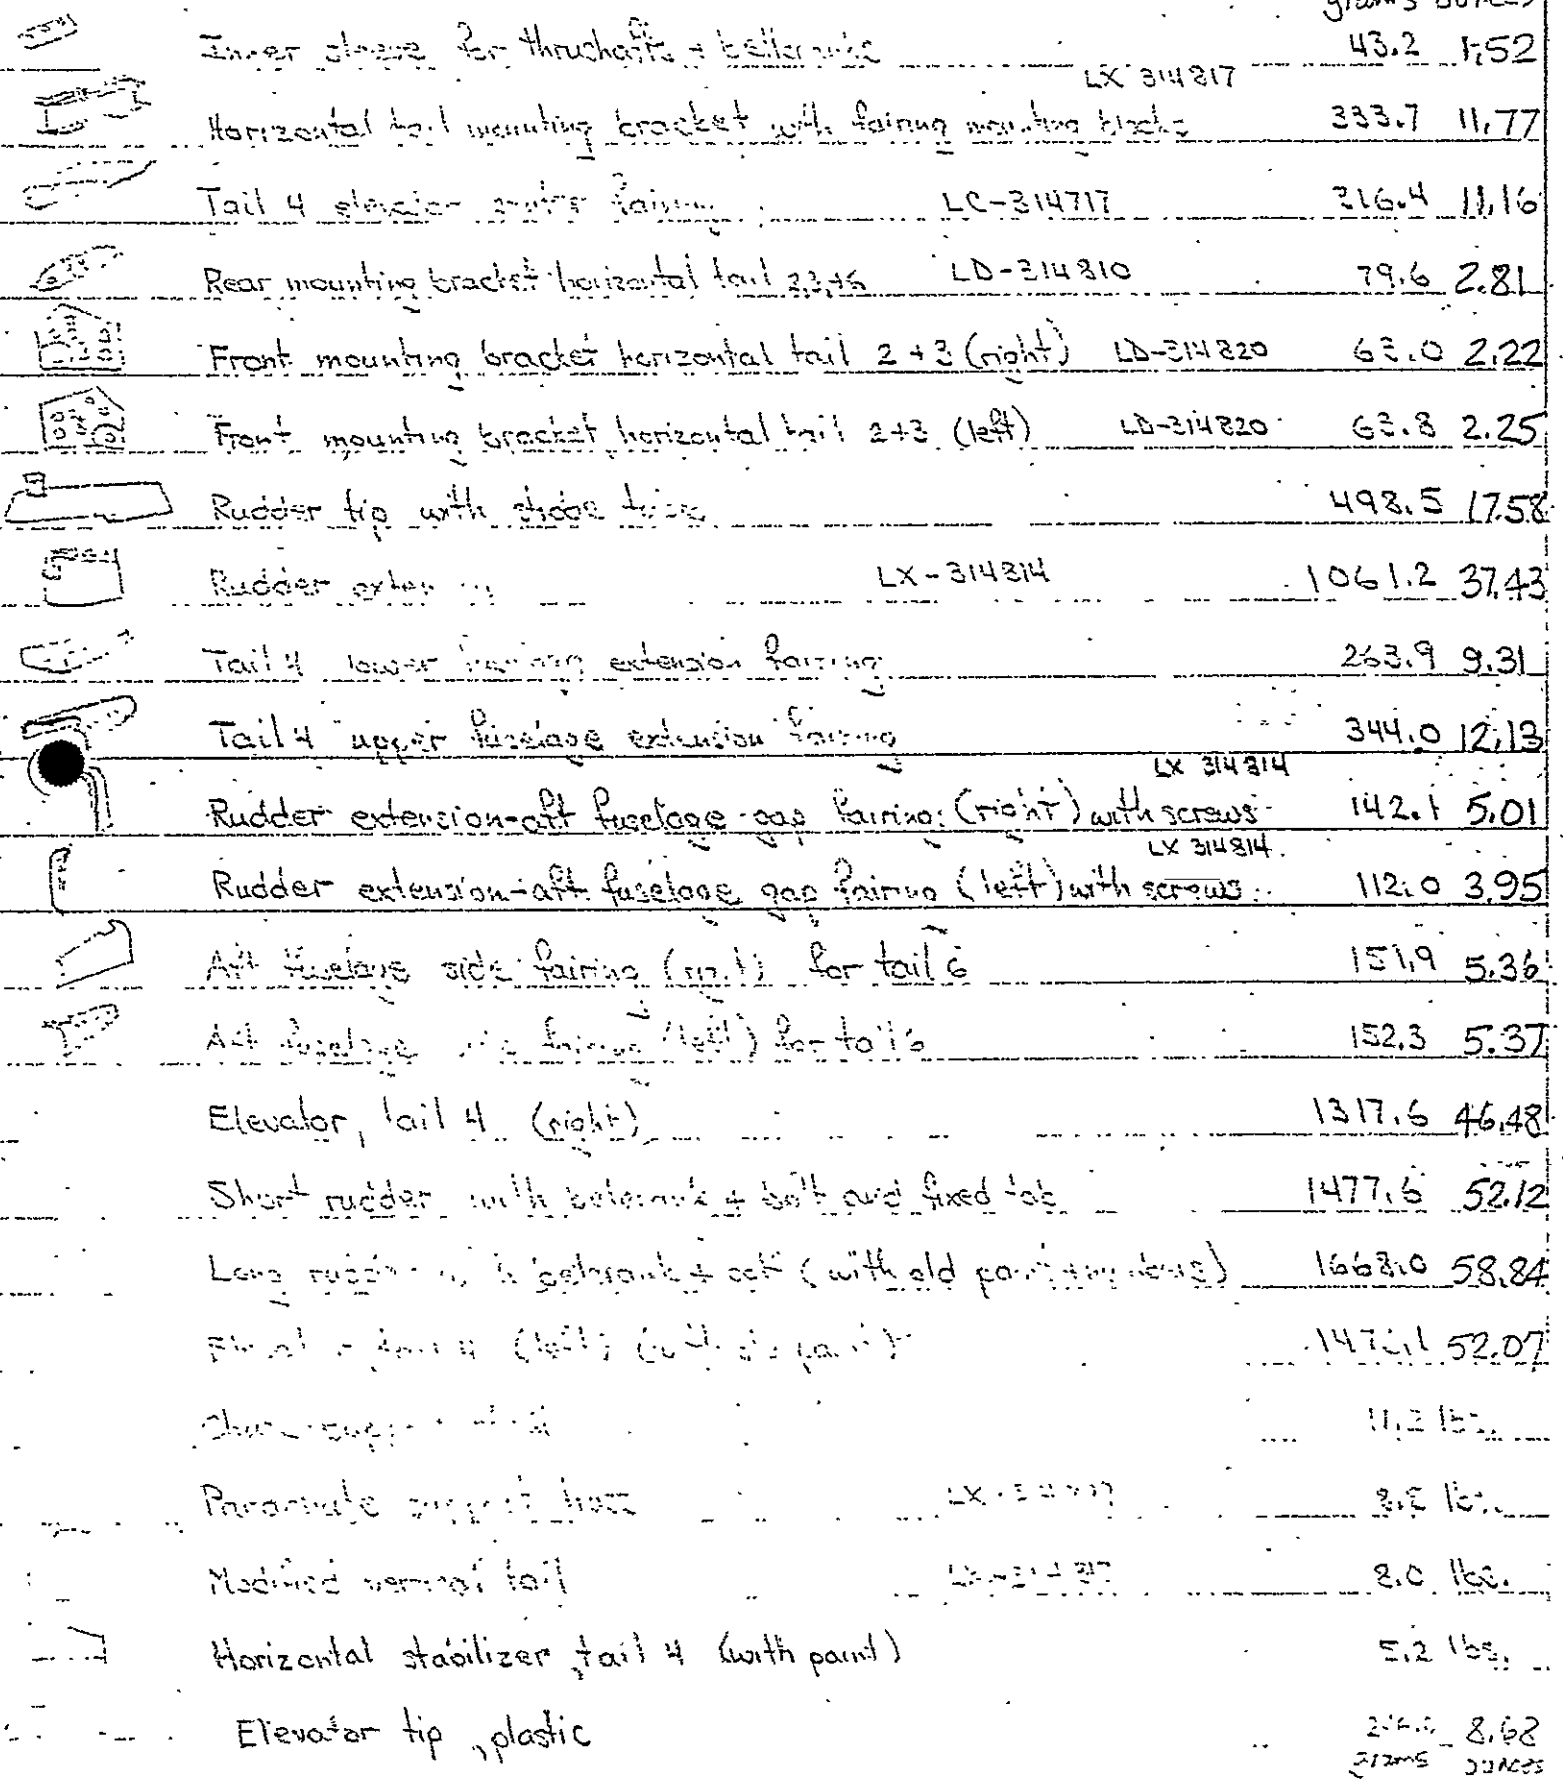 grams ounces
Inner sleeve for thrushafts + bellcranks 43.2 1.52
LX 314817
Horizontal tail mounting bracket with fairing mounting blocks 333.7 11.77
Tail 4 elevator center fairing LC-314717 316.4 11.16
Rear mounting bracket horizontal tail 2,3,+6 LD-314810 79.6 2.81
Front mounting bracket horizontal tail 2+3 (right) LD-314820 63.0 2.22
Front mounting bracket horizontal tail 2+3 (left) LD-314820 63.8 2.25
Rudder tip with strobe 498.5 17.58
Rudder LX-314814 1061.2 37.43
Tail 4 lower extension fairing 263.9 9.31
Tail 4 upper fuselage extension fairing 344.0 12.13
LX 314814
Rudder extension-aft fuselage gap fairing (right) with screws 142.1 5.01
LX 314814
Rudder extension-aft fuselage gap fairing (left) with screws 112.0 3.95
Aft fuselage side fairing (right) for tail 6 151.9 5.36
Aft fuselage side fairing (left) for tail 6 152.3 5.37
Elevator, tail 4 (right) 1317.6 46.48
Short rudder with bellcrank + bolt and fixed tab 1477.6 52.12
Long rudder with bellcrank + bolt (with old paint 1668.0 58.84
(left) 52.07
lbs.
Parachute support lbs.
Modified vertical tail 8.0 lbs.
Horizontal stabilizer, tail 4 (with paint) 5.2 lbs.
Elevator tip, plastic 8.68
grams ounces